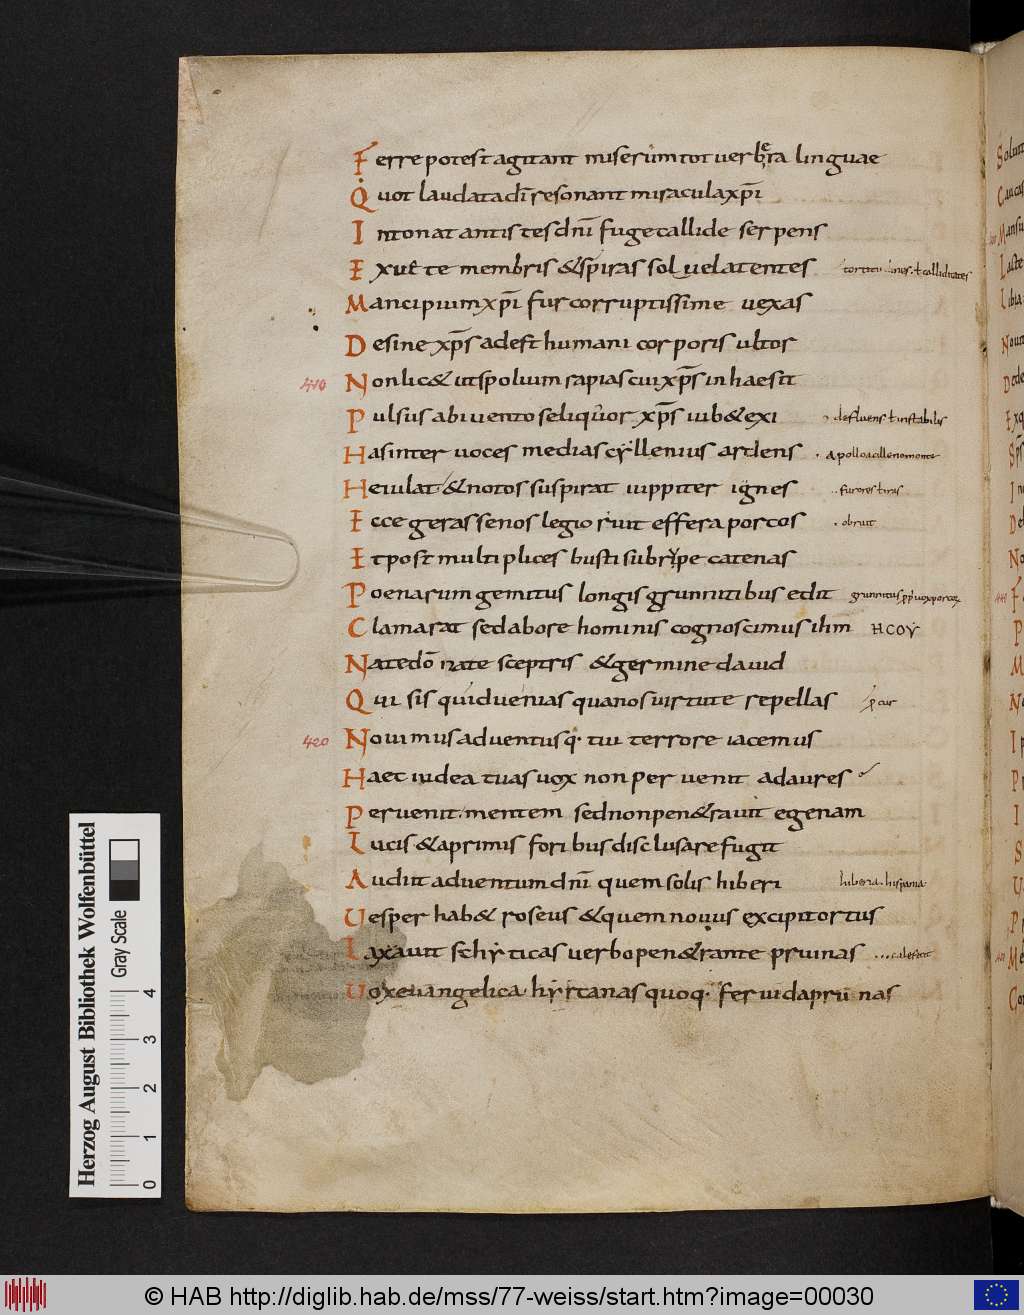 Ferre potest agitant miserum tot verbera linguae
Quot laudata dī resonant miracula xp̄i
Intonat antistes dn̄i fuge callide serpens
Exue te membris & spiras solve latentes
Mancipium xp̄i fur corruptissime vexas
Desine xp̄s adest humani corporis ultor
410 Non lic& ut spolium rapias cui xp̄s inhaesit
Pulsus abi ventose liquor xp̄s iub& exi defluens ł instabilis
Has inter voces medias cyllenius ardens apollo a cilleno monte
Heiulat & notos suspirat iuppiter ignes furores ł iras
Ecce gerassenos legio ruit effera porcos obruit
Et post multiplices busti subripe catenas
Poenarum gemitus longis grunnitibus edit
Clamarat sed ab ore hominis cognoscimus ihm HCOY
Nate dō nate sceptris & germine david
Qui sis quid venias qua nos virtute repellas
420 Novimus adventusq· tui terrore iacemus
Haec iudea tuas vox non pervenit ad aures
Pervenit mentem sed non pen&ravit egenam
Lucis & a primis foribus disclusa refugit
Audiit adventum dn̄i quem solis hiberi hiberia hispania
Vesper hab& roseus & quem novus excipit ortus
Laxavit schyticas verbo pen&rante pruinas calefecit
Vox evangelica hyrcanas quoq· fervida pruinas
Herzog August Bibliothek Wolfenbüttel
Gray Scale
0 1 2 3 4
© HAB http://diglib.hab.de/mss/77-weiss/start.htm?image=00030